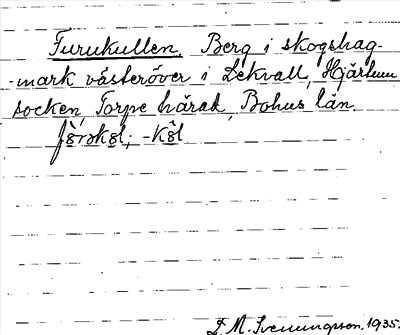 Furukullen, Berg i skogshag-
-mark västeröver i Lekvall, Hjärtum
socken, Torpe härad, Bohus län.
D. M. Svenungsson, 1935.